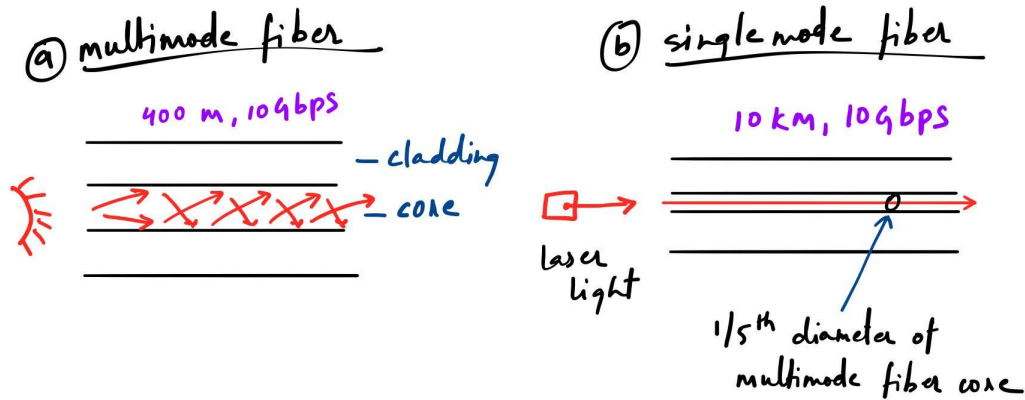 a multimode fiber
400 m, 10Gbps
cladding
core
b single mode fiber
10 km, 10Gbps
laser
light
1/5th diameter of
multimode fiber core